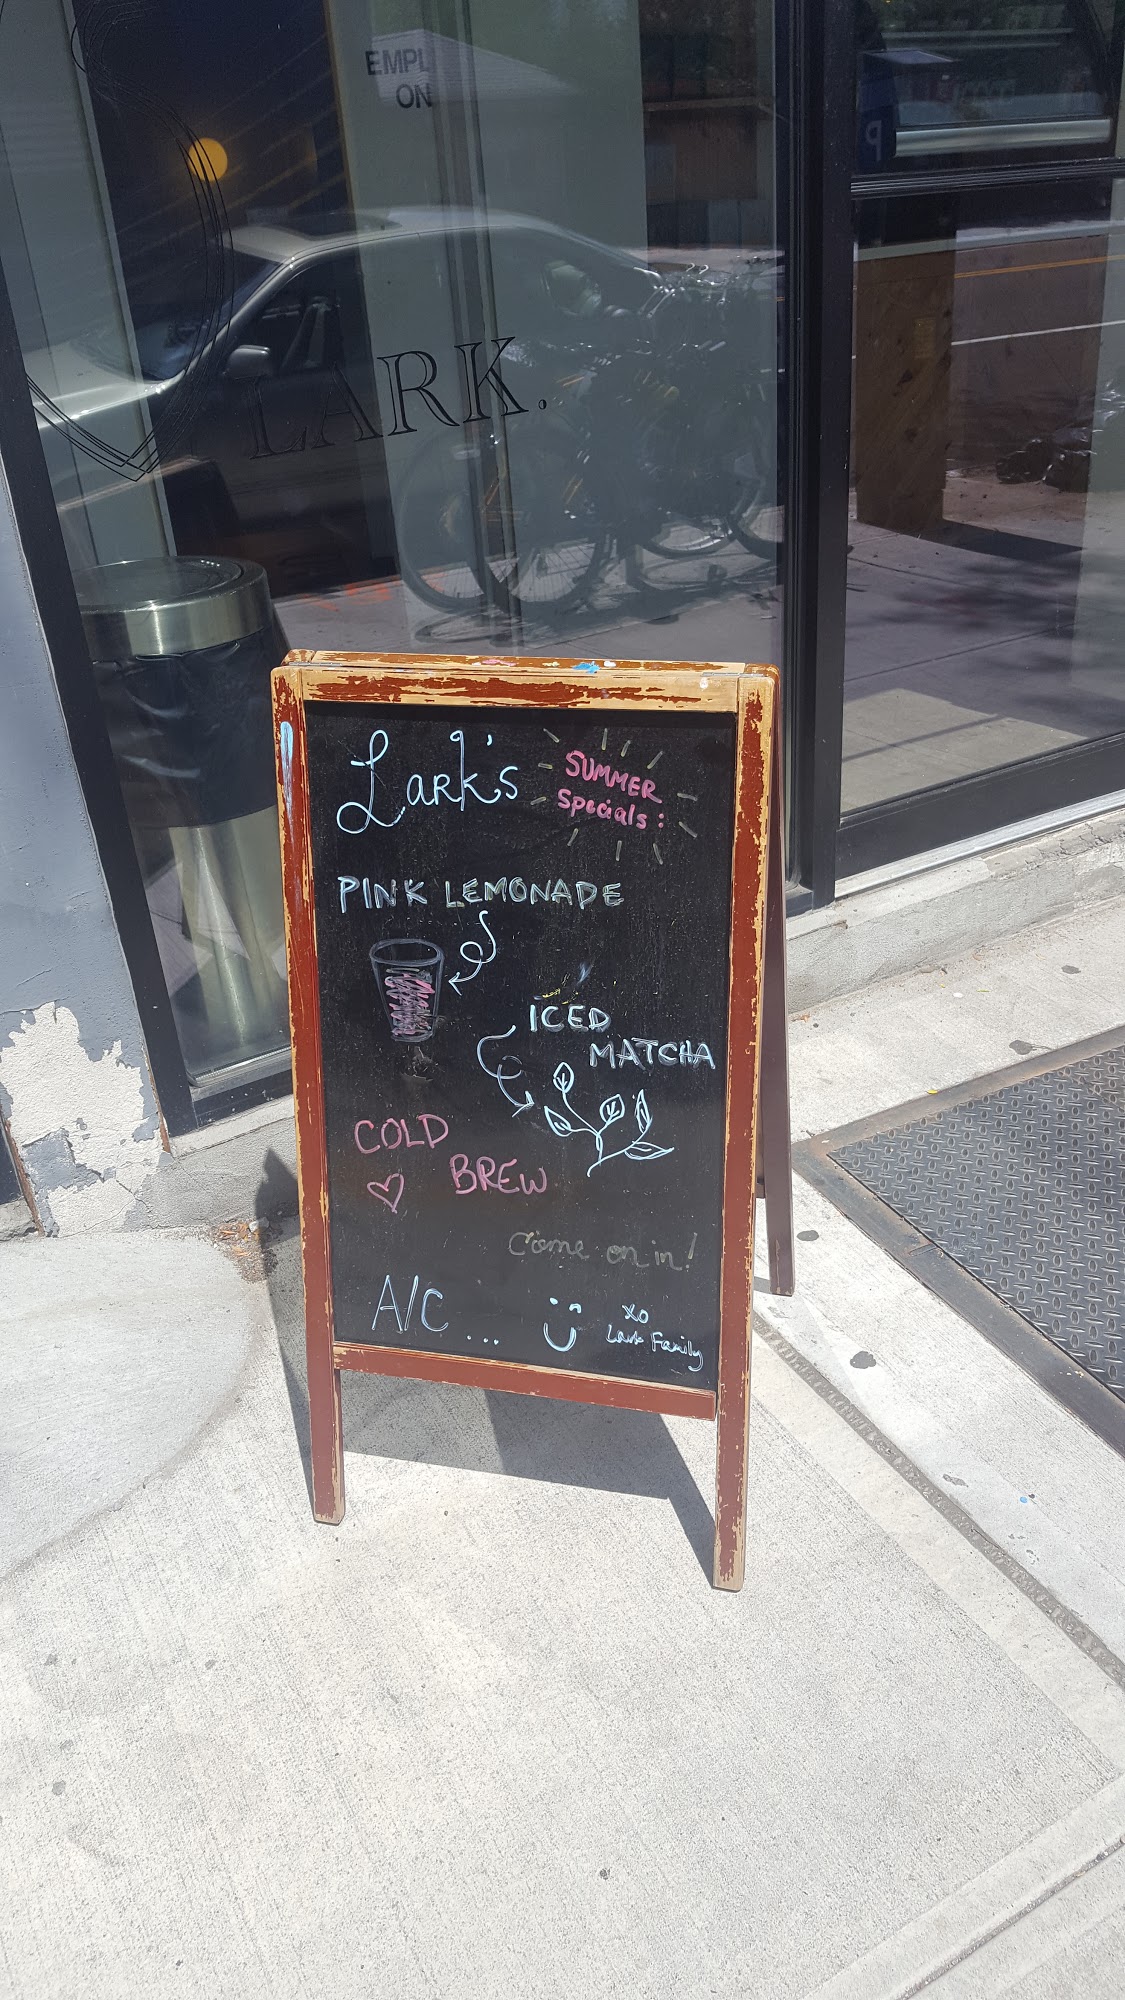 EMPL
ON
LARK.
Lark's
SUMMER
Specials:
PINK LEMONADE
ICED
MATCHA
COLD
BREW
Come on in!
A/C ...
xo
Lark Family